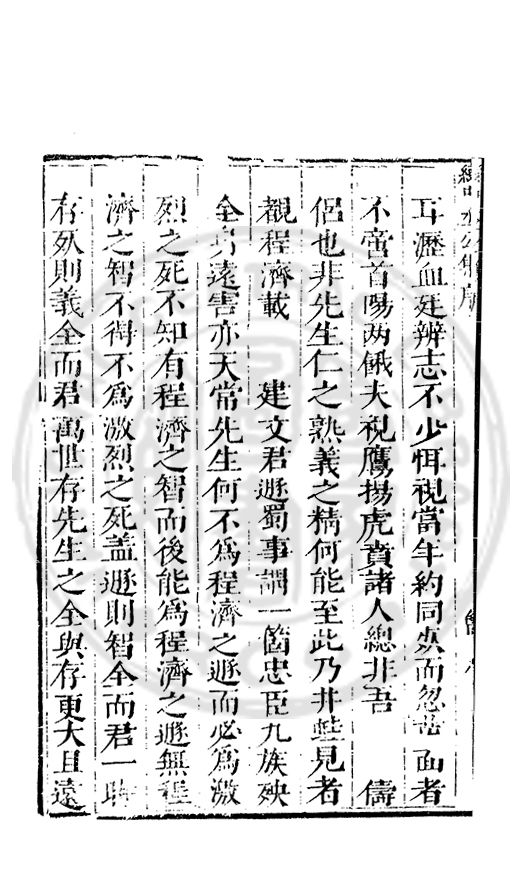 耳瀝血廷辨志不少恇視當年約同死而忽吿面者
不啻首陽两餓夫視鷹揚虎賁諸人總非吾 儔
侣也非先生仁之熟義之精何能至此乃井蛙見者
覩程濟載 建文君遯蜀事謂一箇忠臣九族殃
全身遠害亦天常先生何不爲程濟之遯而必爲激
烈之死不知有程濟之智而後能爲程濟之遯無程
濟之智不得不爲激烈之死盖遯則智全而君一時
存死則義全而君萬世存先生之全與存更大且遠